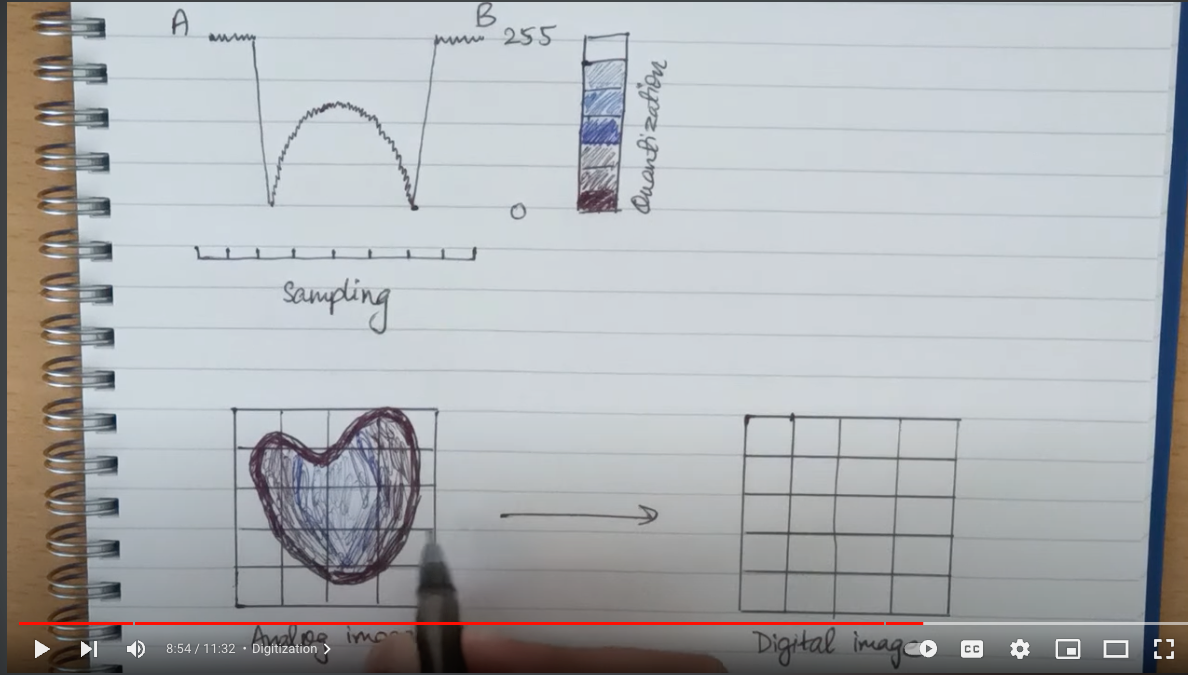 A
B
255
Quantization
0
Sampling
Analog image
Digital image
8:54 / 11:32 • Digitization >
CC